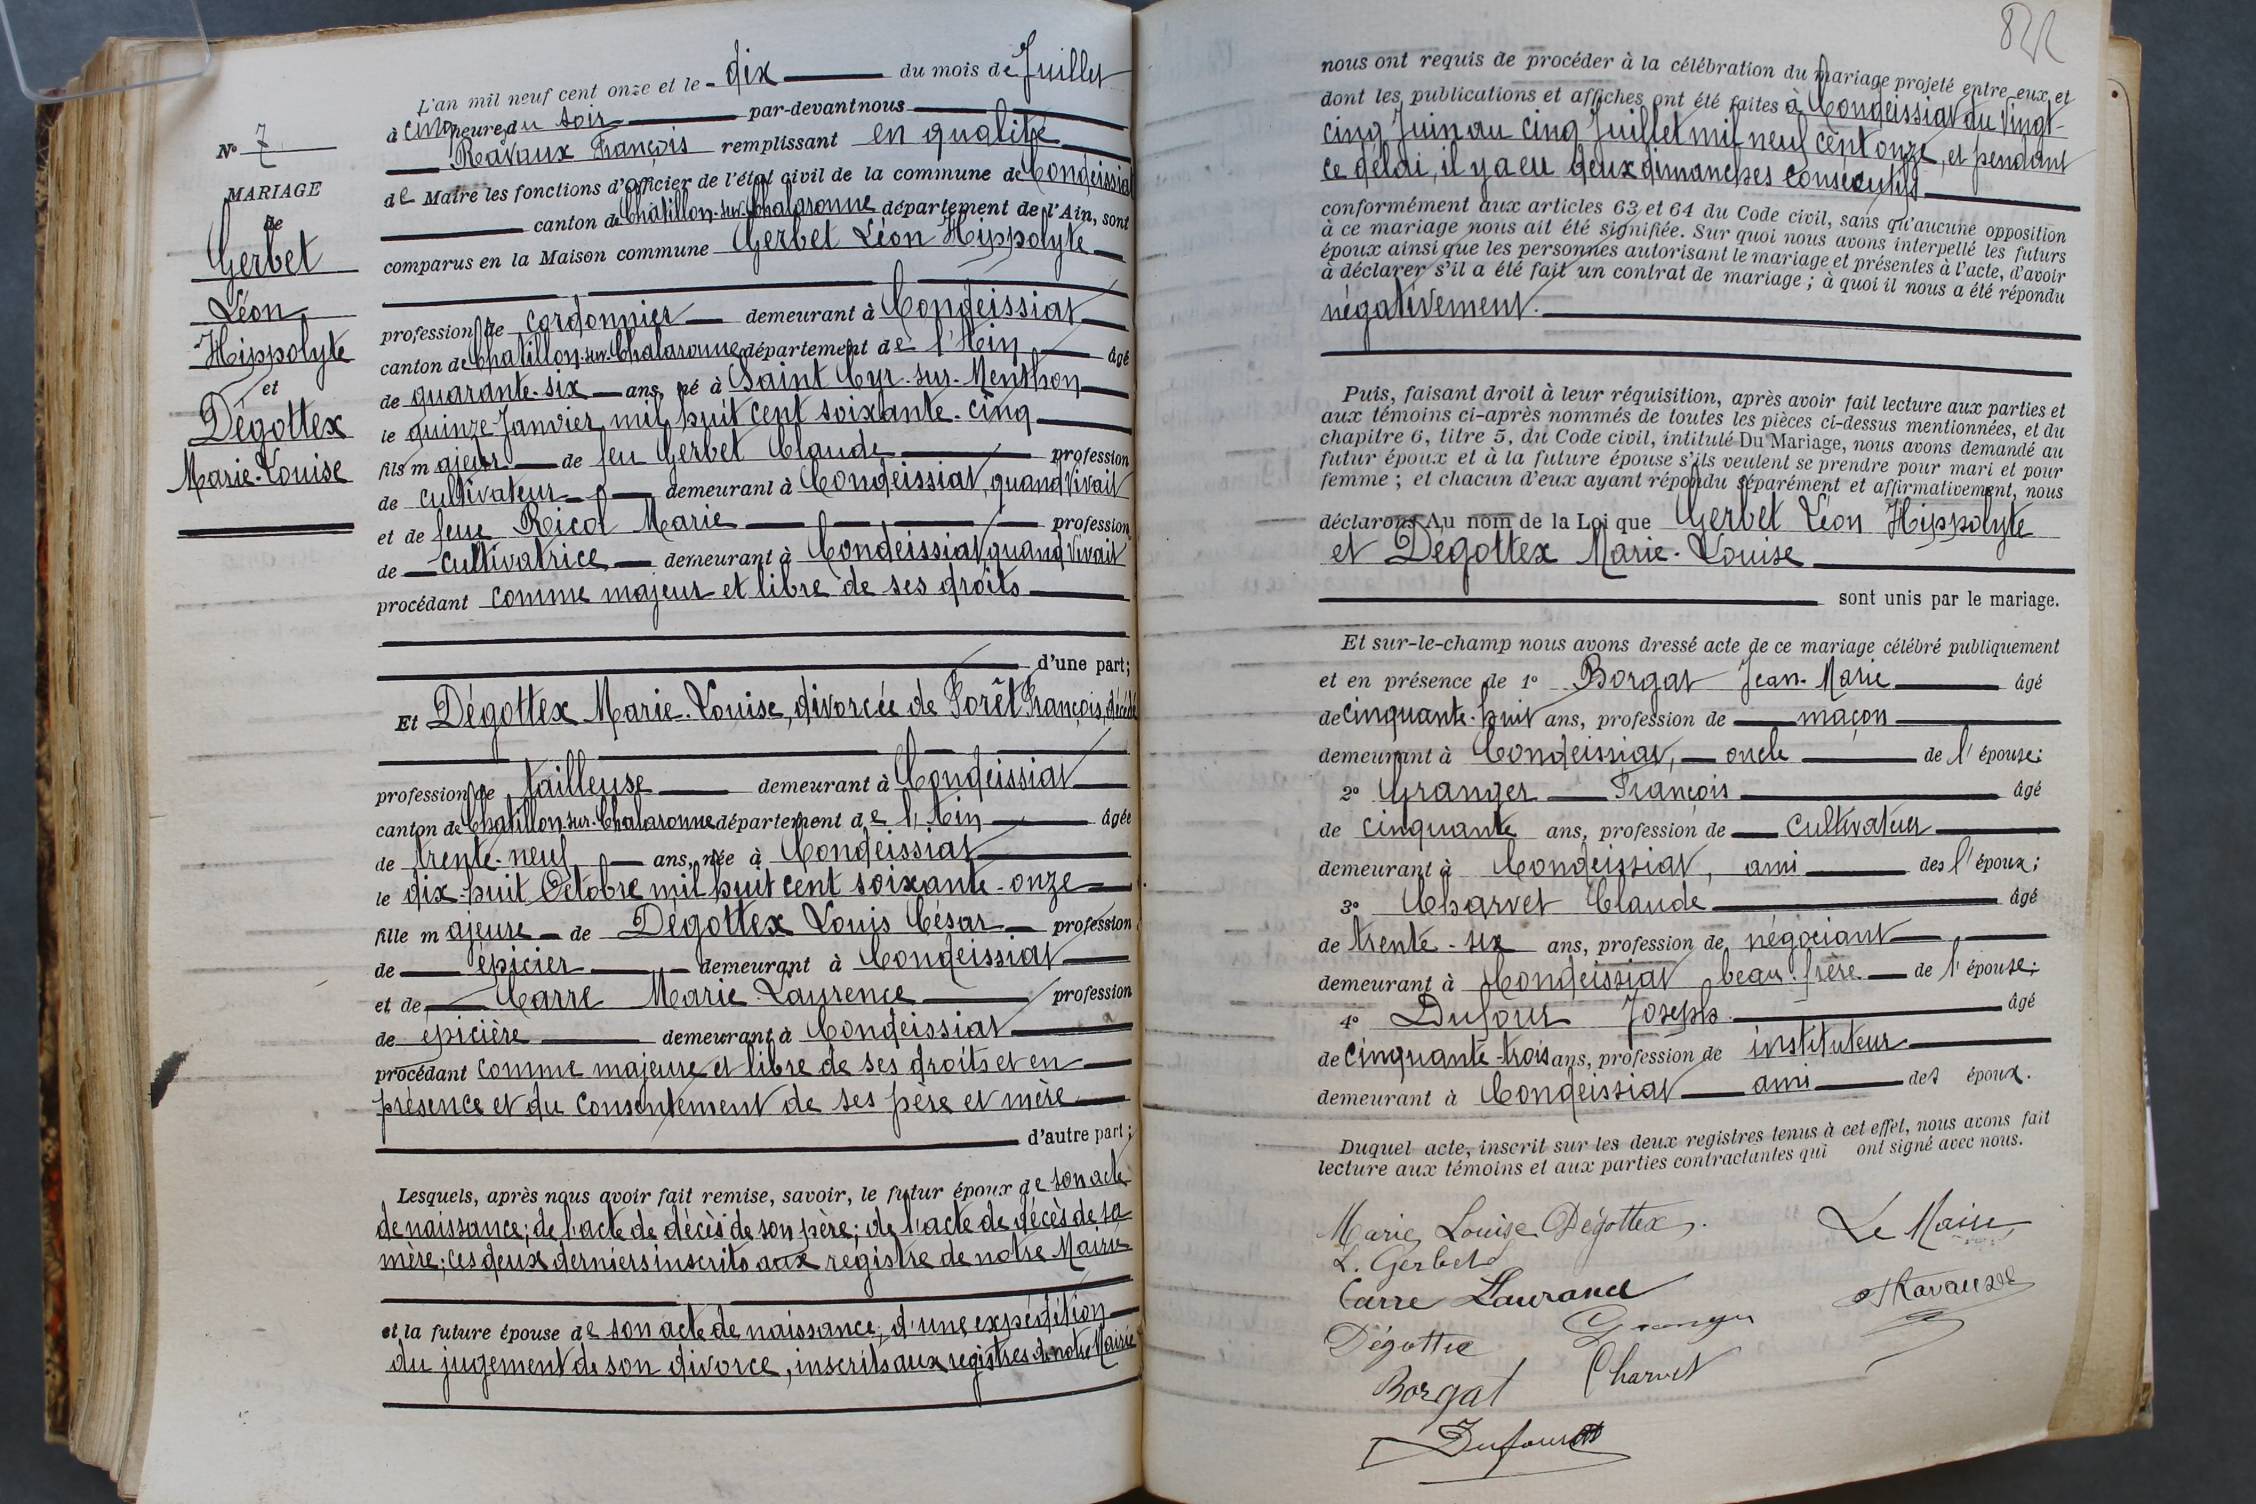 N° 7
MARIAGE
de
Gerbet
Léon
Hippolyte
et
Dégottex
Marie-Louise
L'an mil neuf cent onze et le dix du mois de Juillet
à cinq heures du soir par-devant nous
Ravaux François remplissant en qualité
de Maire les fonctions d'officier de l'état civil de la commune de Condeissiat
canton de Châtillon-sur-Chalaronne département de l'Ain, sont
comparus en la Maison commune Gerbet Léon Hippolyte
profession de cordonnier demeurant à Condeissiat
canton de Châtillon-sur-Chalaronne département de l'Ain âgé
de quarante-six ans, né à Saint Cyr-sur-Menthon
le quinze Janvier mil huit cent soixante-cinq
fils majeur de feu Gerbet Claude profession
de cultivateur demeurant à Condeissiat, quand vivait
et de feue Ricol Marie profession
de cultivatrice demeurant à Condeissiat quand vivait
procédant comme majeur et libre de ses droits
d'une part;
Et Dégottex Marie-Louise, divorcée de Forêt François, décédé
profession de tailleuse demeurant à Condeissiat
canton de Châtillon-sur-Chalaronne département de l'Ain âgée
de trente-neuf ans, née à Condeissiat
le dix-huit Octobre mil huit cent soixante-onze
fille majeure de Dégottex Louis César profession
de épicier demeurant à Condeissiat
et de Carre Marie-Laurence profession
de épicière demeurant à Condeissiat
procédant comme majeure et libre de ses droits et en
présence et du consentement de ses père et mère
d'autre part;
Lesquels, après nous avoir fait remise, savoir, le futur époux de son acte
de naissance; de l'acte de décès de son père; de l'acte de décès de sa
mère; ces deux derniers inscrits aux registre de notre Mairie
et la future épouse de son acte de naissance; d'une expédition
du jugement de son divorce, inscrits aux registres de notre Mairie
822
nous ont requis de procéder à la célébration du mariage projeté entre eux et
dont les publications et affiches ont été faites à Condeissiat du vingt-
cinq Juin au cinq Juillet mil neuf cent onze, et pendant
ce délai, il y a eu deux dimanches consécutifs
conformément aux articles 63 et 64 du Code civil, sans qu'aucune opposition
à ce mariage nous ait été signifiée. Sur quoi nous avons interpellé les futurs
époux ainsi que les personnes autorisant le mariage et présentes à l'acte, d'avoir
à déclarer s'il a été fait un contrat de mariage; à quoi il nous a été répondu
négativement.
Puis, faisant droit à leur réquisition, après avoir fait lecture aux parties et
aux témoins ci-après nommés de toutes les pièces ci-dessus mentionnées, et du
chapitre 6, titre 5, du Code civil, intitulé Du Mariage, nous avons demandé au
futur époux et à la future épouse s'ils veulent se prendre pour mari et pour
femme; et chacun d'eux ayant répondu séparément et affirmativement, nous
déclarons Au nom de la Loi que Gerbet Léon Hippolyte
et Dégottex Marie-Louise
sont unis par le mariage.
Et sur-le-champ nous avons dressé acte de ce mariage célébré publiquement
et en présence de 1° Borgat Jean-Marie âgé
de cinquante-huit ans, profession de maçon
demeurant à Condeissiat, oncle de l'épouse;
2° Granger François âgé
de cinquante ans, profession de cultivateur
demeurant à Condeissiat, ami des l'époux;
3° Charvet Claude âgé
de trente-six ans, profession de négociant
demeurant à Condeissiat beau-frère de l'épouse;
4° Dufour Joseph âgé
de cinquante-trois ans, profession de instituteur
demeurant à Condeissiat ami des époux.
Duquel acte, inscrit sur les deux registres tenus à cet effet, nous avons fait
lecture aux témoins et aux parties contractantes qui ont signé avec nous.
Marie Louise Dégottex. Le Maire
L. Gerbet
Carre Laurance Ravaux
Granger
Dégottex
Charvet
Borgat
Dufour